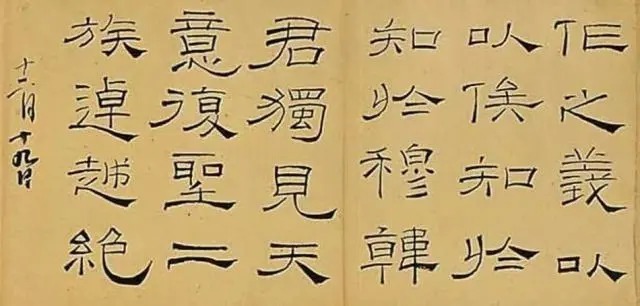 作之義以
以俟知於
知於穆韓
君獨見天
意復聖二
族逴越絕
十二月十九日